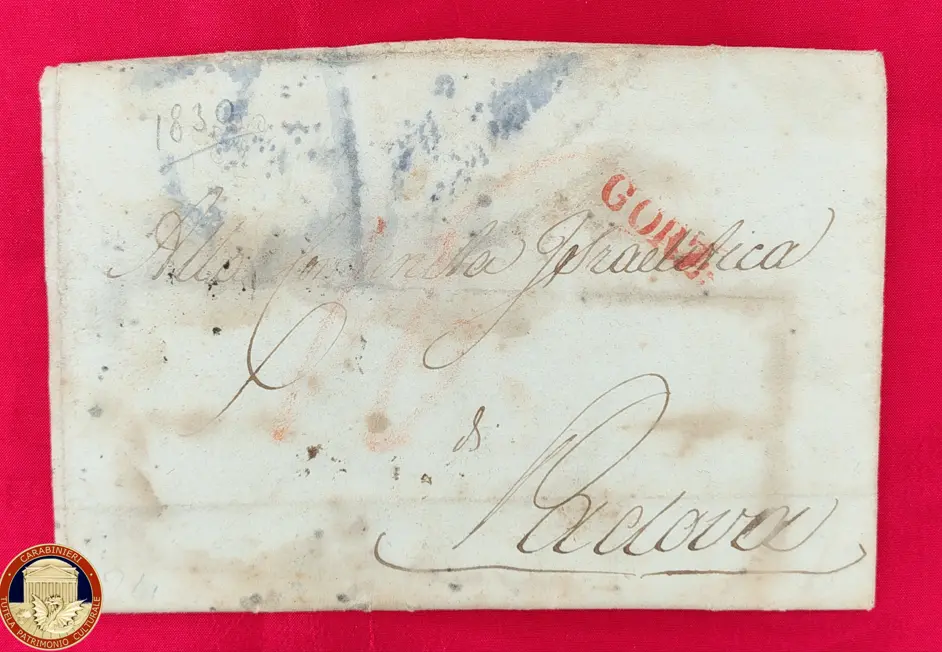 1830
GORZ
Alla Comunità Israelitica
di
Padova
CARABINIERI
TUTELA PATRIMONIO CULTURALE